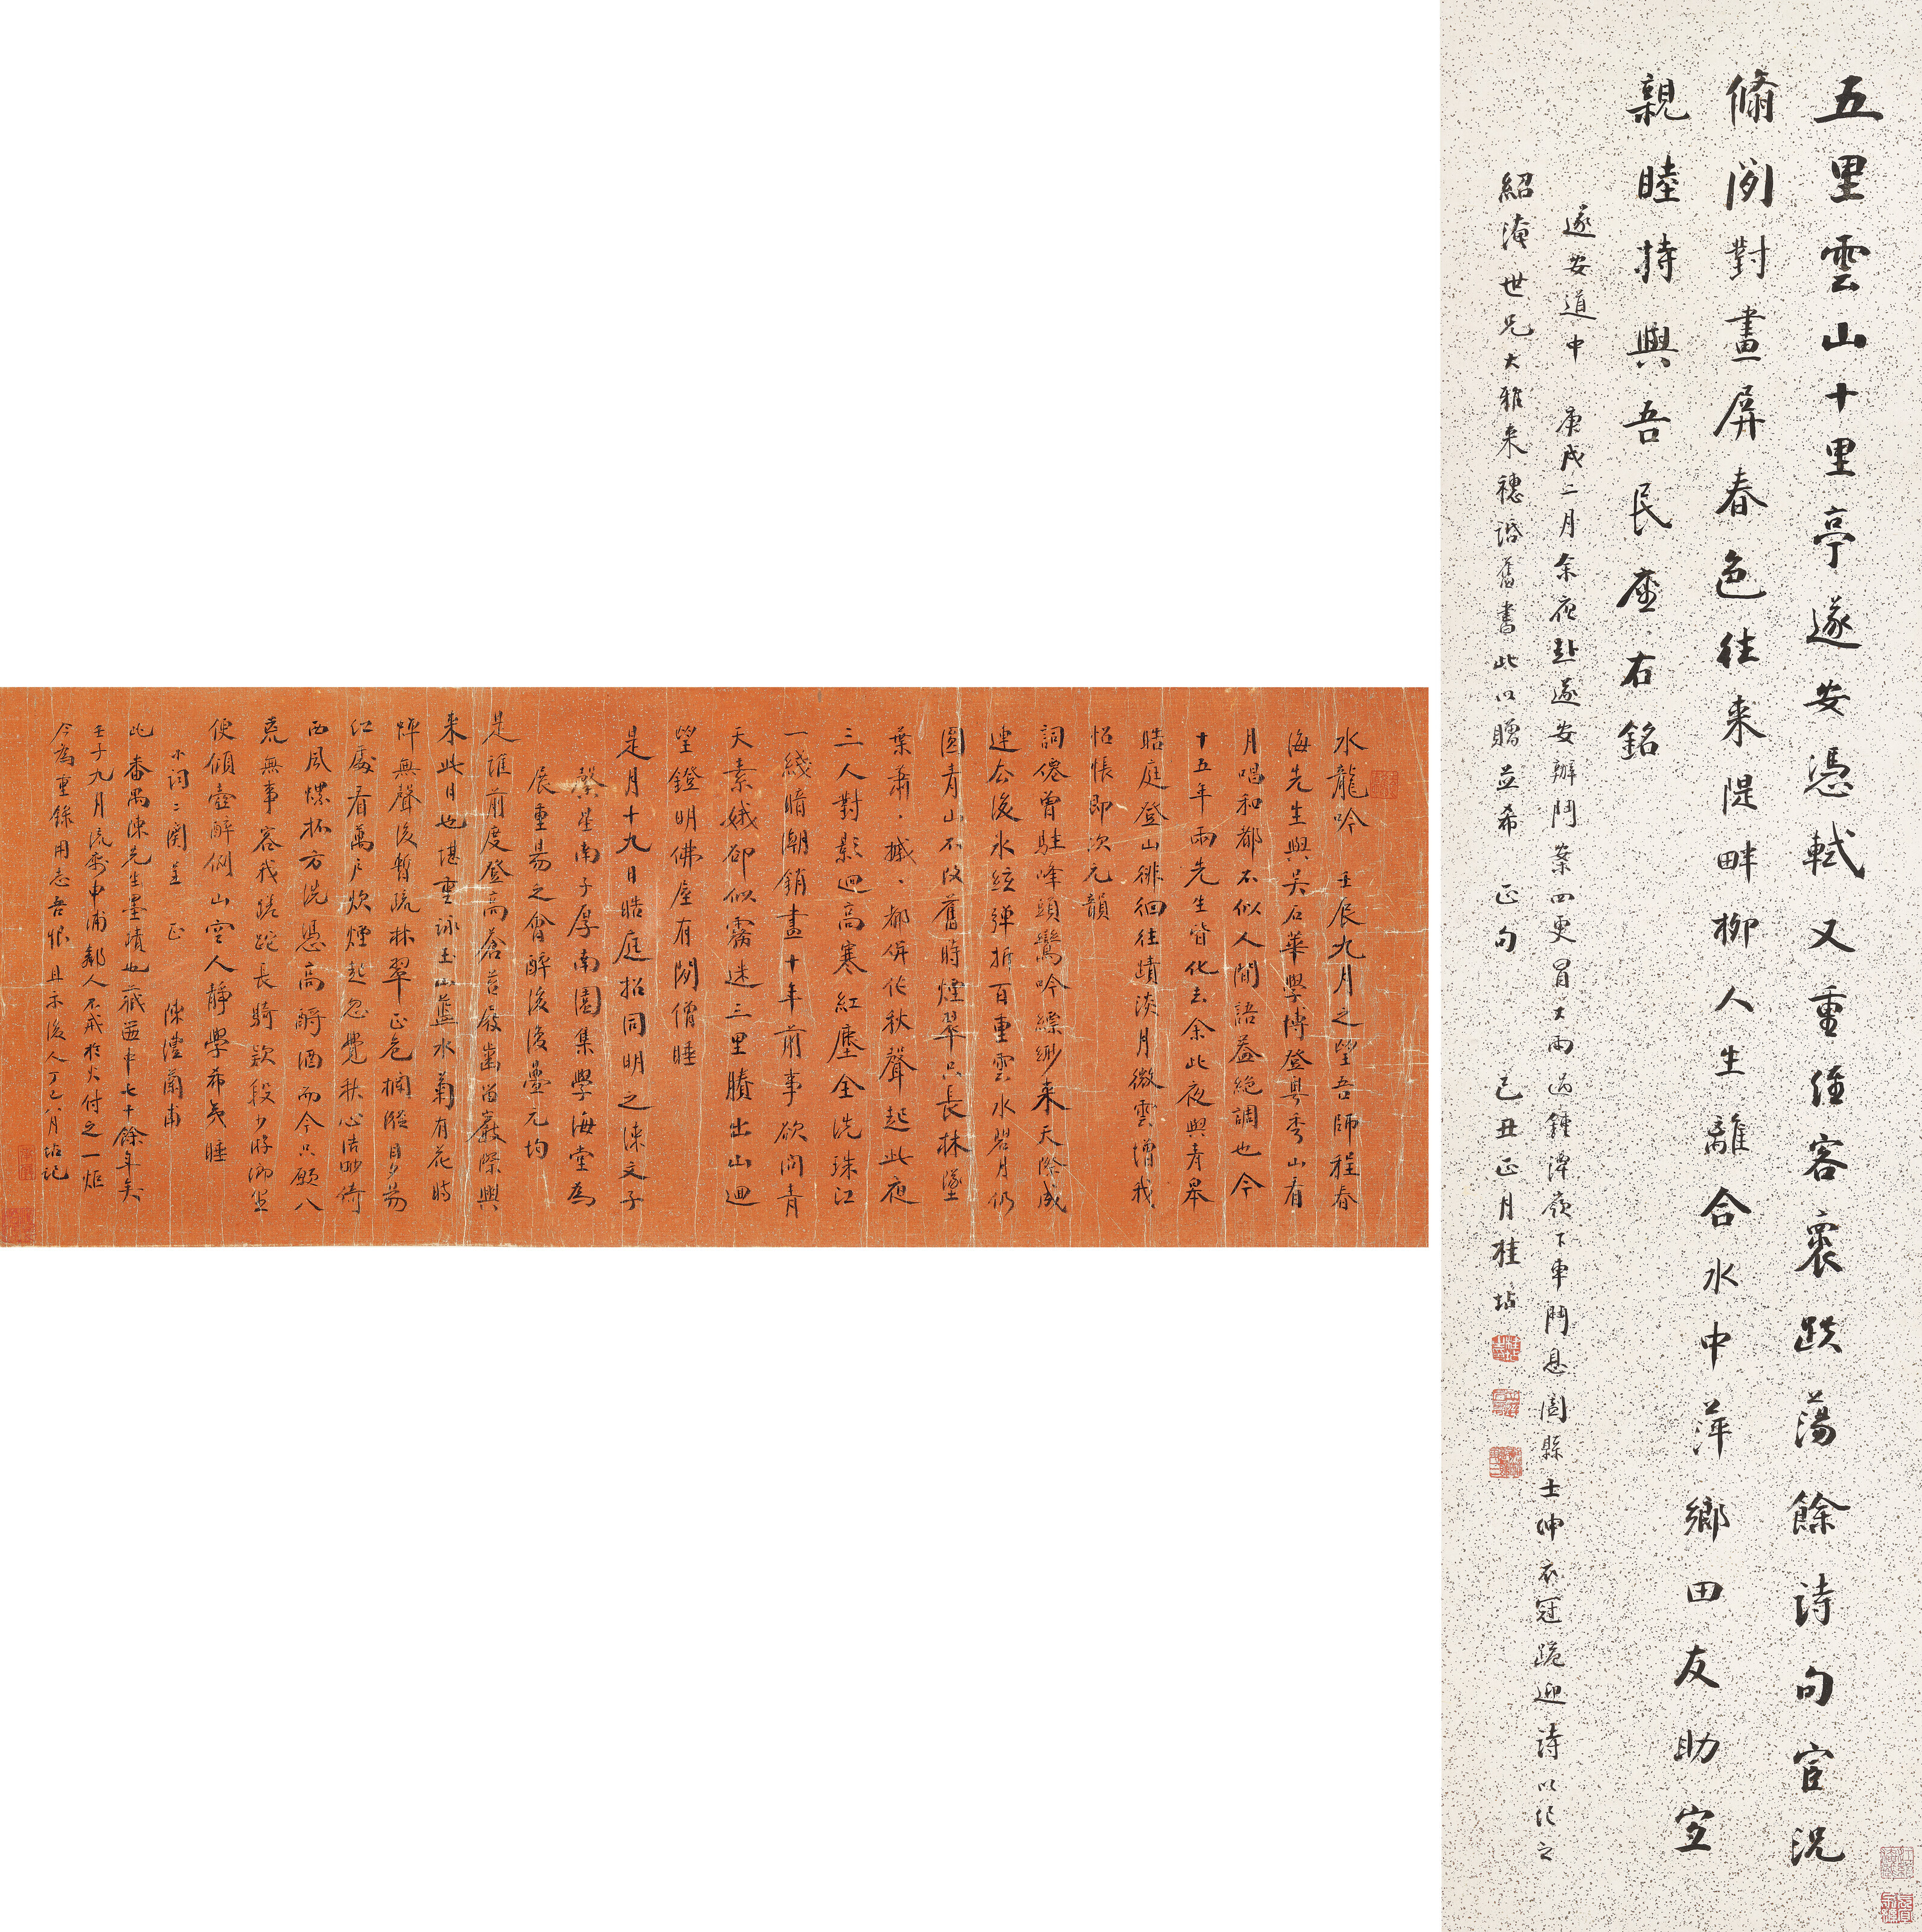 五里雲山十里亭遂安憑軾又重經客裏跌蕩餘詩句官況
翛閑對畫屏春色往來隄畔柳人生離合水中萍鄉田友助宜
親睦持與吾民座右銘
遂安道中 庚戌二月余夜赴遂安辦鬥案四更冒大雨過鍾潭嶺下車鬥息闔縣士紳衣冠跪迎詩以紀之
紹淹世兄大雅來穗話舊書此以贈並希 正句 己丑正月桂坫
水龍吟 壬辰九月之望吾師程春
海先生與吳石華學博登粵秀山看
月唱和都不似人間語益絕調也今
十五年兩先生皆化去余此夜與青皋
晧庭登山徘徊往蹟淡月微雲增我
怊悵即次元韻
詞僊曾駐峰頭鸞吟縹緲来天際成
連去後冰絃彈折百重雲水碧月仍
圓青山不改舊時煙翠只長林墜
葉蕭、摵、都併作秋聲起此夜
三人對影迥高寒紅塵全洗珠江
一綫暗潮銷盡十年前事欲問青
天素娥卻似霧迷三里賸出山迴
望鐙明佛座有閑僧睡
是月十九日晧庭招同明之涑文子
馨星南子厚南園集學海堂為
展重昜之會醉後復疊元均
是誰前度登高蒼苔屐齒留巖際與
来此日也堪重詠玉山藍水菊有花時
蟬無聲後暫疏林翠正危欄隘目夕昜
紅處看萬戶炊煙起忽覺秋心浩眇倚
西風螺杯方洗憑高酹酒而今只願八
荒無事容我蹉跎長騎款段少游鄉里
便傾壺醉倒山空人靜學希夷睡
小詞二闋呈 正 陳澧蘭甫
此番禺陳先生墨蹟也藏篋中七十餘年矣
壬子九月流寓申浦鄰人不戒於火付之一炬
今為重錄用志吾恨且示後人丁巳八月坫記